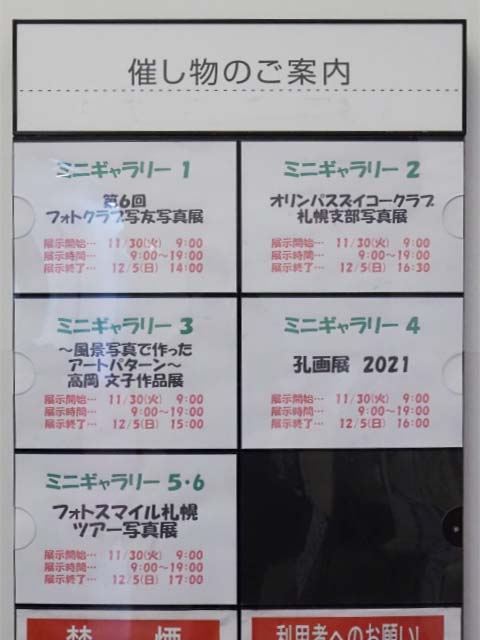 催し物のご案内
ミニギャラリー 1
第6回
フォトクラブ写友写真展
展示開始… 11/30(火) 9:00
展示時間… 9:00～19:00
展示終了… 12/5(日) 14:00
ミニギャラリー 2
オリンパスズイコークラブ
札幌支部写真展
展示開始… 11/30(火) 9:00
展示時間… 9:00～19:00
展示終了… 12/5(日) 16:30
ミニギャラリー 3
～風景写真で作った
アートパターン～
高岡 文子作品展
展示開始… 11/30(火) 9:00
展示時間… 9:00～19:00
展示終了… 12/5(日) 15:00
ミニギャラリー 4
孔画展 2021
展示開始… 11/30(火) 9:00
展示時間… 9:00～19:00
展示終了… 12/5(日) 16:00
ミニギャラリー 5・6
フォトスマイル札幌
ツアー写真展
展示開始… 11/30(火) 9:00
展示時間… 9:00～19:00
展示終了… 12/5(日) 17:00
禁 煙
利用者へのお願い